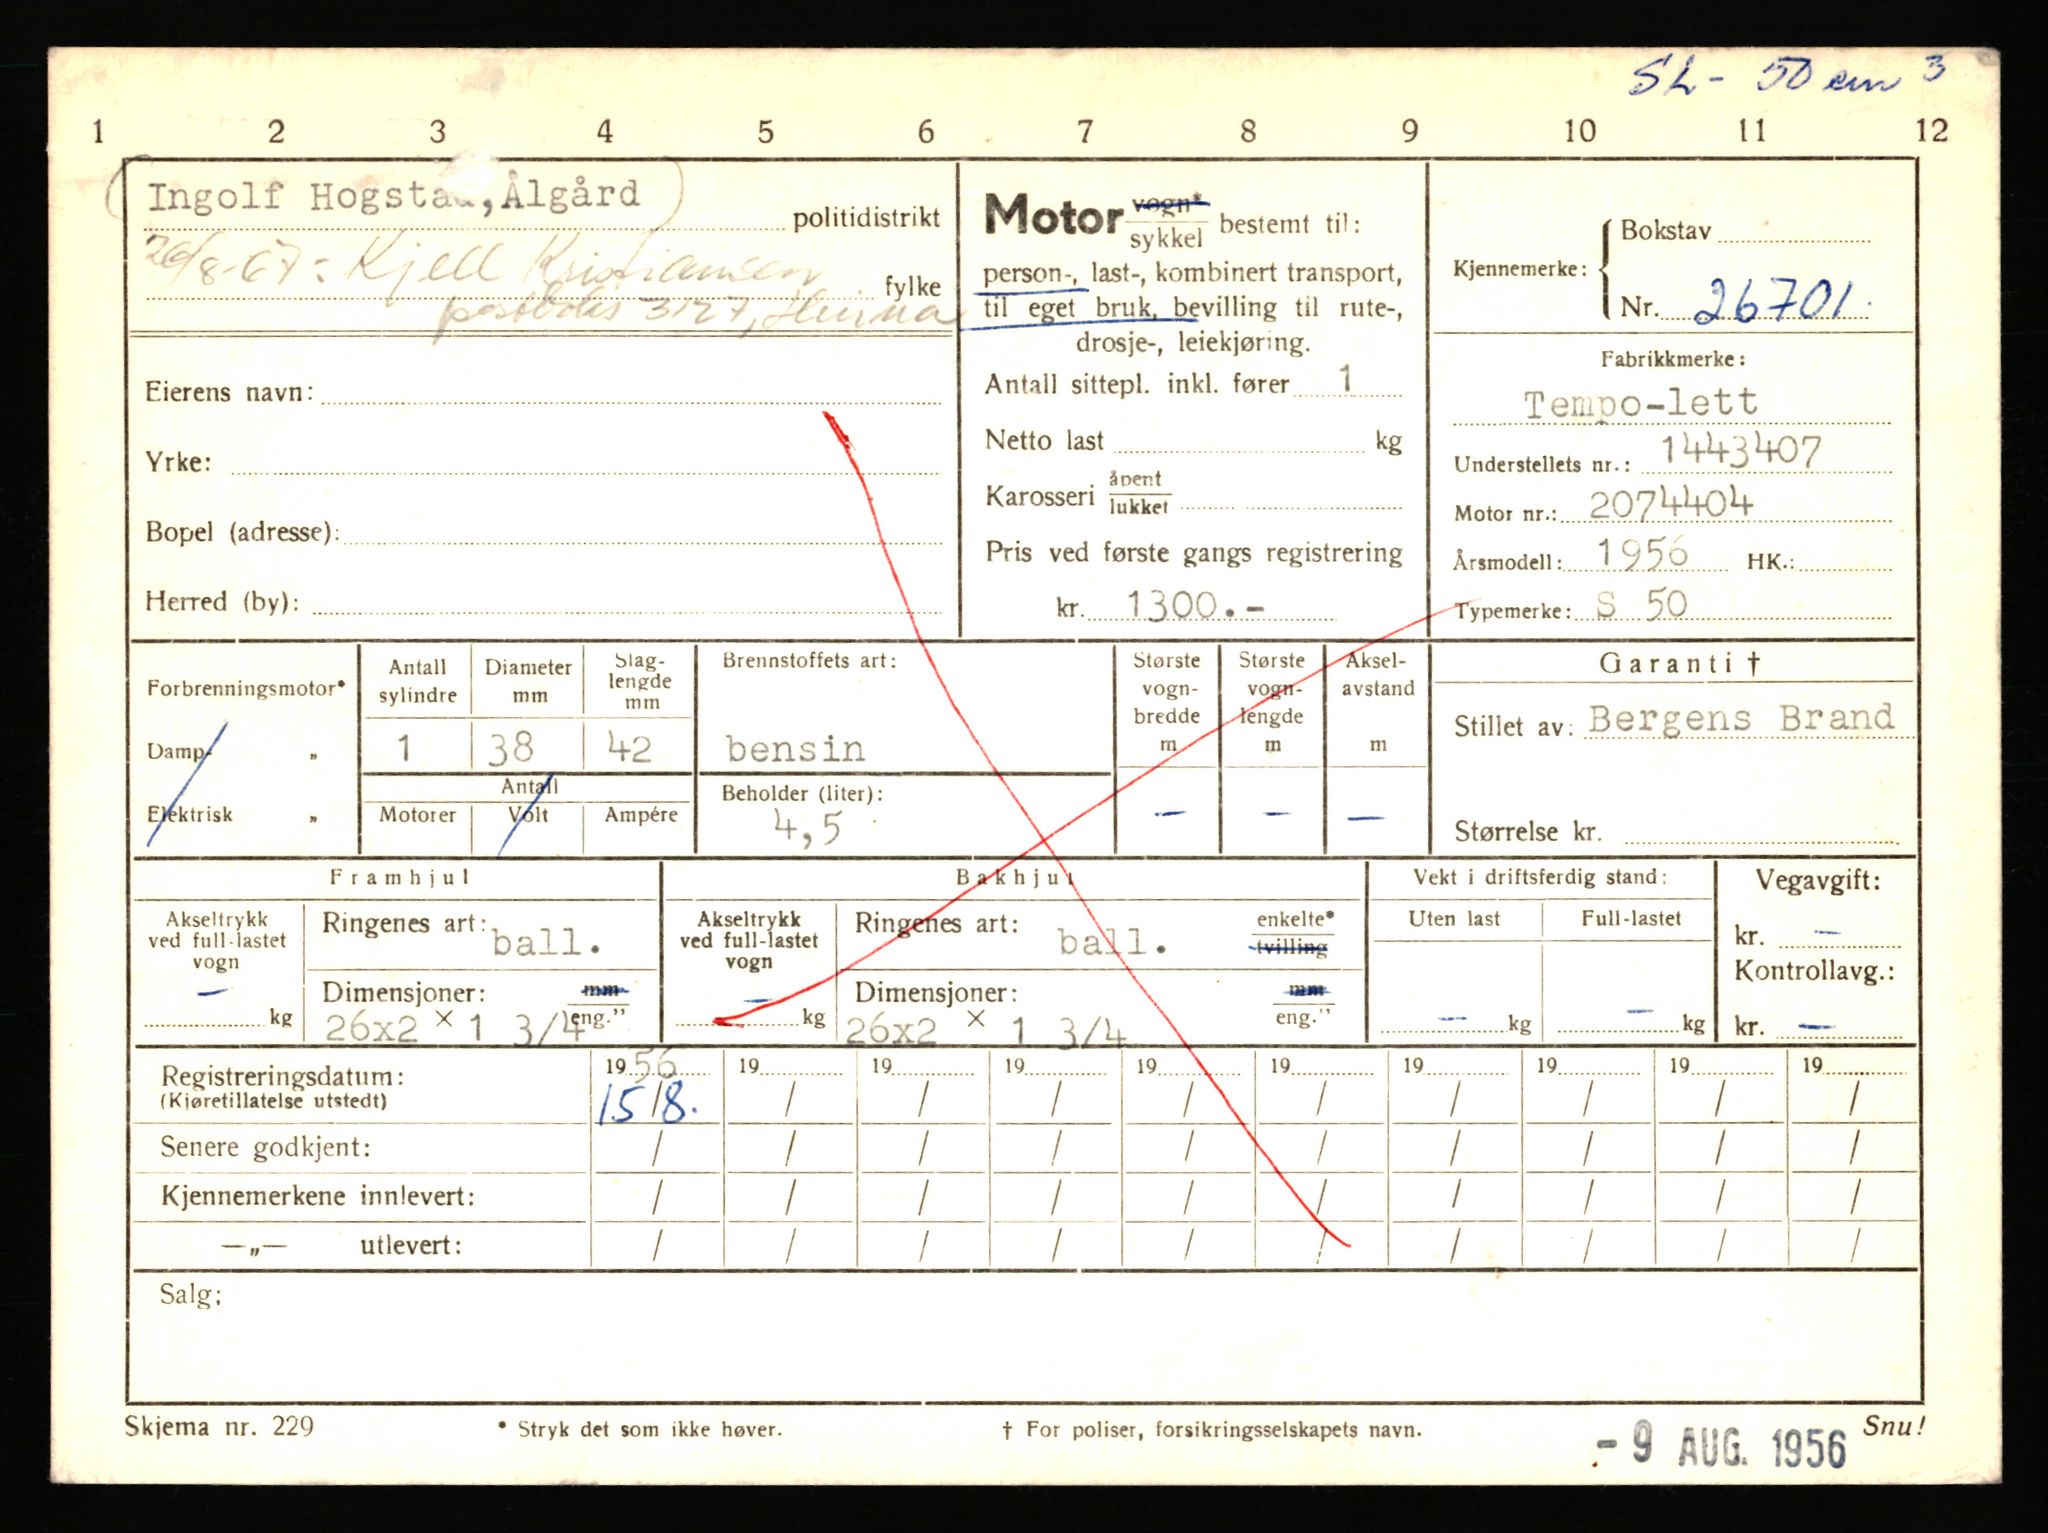 SL - 50 cm 3
1 2 3 4 5 6 7 8 9 10 11 12
(Ingolf Hogstad, Ålgård)
politidistrikt
26/8-67: Kjell Kristiansen
fylke
postboks 3127, 
Eierens navn:
Yrke:
Bopel (adresse):
Herred (by):
Motor vogn* sykkel bestemt til:
person-, last-, kombinert transport,
til eget bruk, bevilling til rute-,
drosje-, leiekjøring.
Antall sittepl. inkl. fører 1
Netto last kg
Karosseri åpent lukket
Pris ved første gangs registrering
kr. 1300.-
Kjennemerke: Bokstav
Nr. 26701.
Fabrikkmerke:
Tempo-lett
Understellets nr.: 1443407
Motor nr.: 2074404
Årsmodell: 1956 HK.:
Typemerke: S 50
Forbrenningsmotor*
Damp- "
Elektrisk "
Antall sylindre
1
Diameter mm
38
Slag-
lengde
mm
42
Antall
Motorer Volt Ampére
Brennstoffets art:
bensin
Beholder (liter):
4,5
Største
vogn-
bredde
m
–
Største
vogn-
lengde
m
–
Aksel-
avstand
m
–
Garanti †
Stillet av: Bergens Brand
Størrelse kr.
Framhjul
Akseltrykk
ved full-lastet
vogn
– kg
Ringenes art: ball.
Dimensjoner: mm eng."
26x2 × 1 3/4
Bakhjul
Akseltrykk
ved full-lastet
vogn
– kg
Ringenes art: ball. enkelte* tvilling
Dimensjoner: mm eng."
26x2 × 1 3/4
Vekt i driftsferdig stand:
Uten last Full-lastet
– kg – kg
Vegavgift:
kr. –
Kontrollavg.:
kr. –
Registreringsdatum: 1956 19 19 19 19 19 19 19 19 19
(Kjøretillatelse utstedt) 15/8. / / / / / / / / /
Senere godkjent: / / / / / / / / / /
Kjennemerkene innlevert: / / / / / / / / / /
—„— utlevert: / / / / / / / / / /
Salg:
Skjema nr. 229 * Stryk det som ikke høver. † For poliser, forsikringsselskapets navn. Snu!
- 9 AUG. 1956